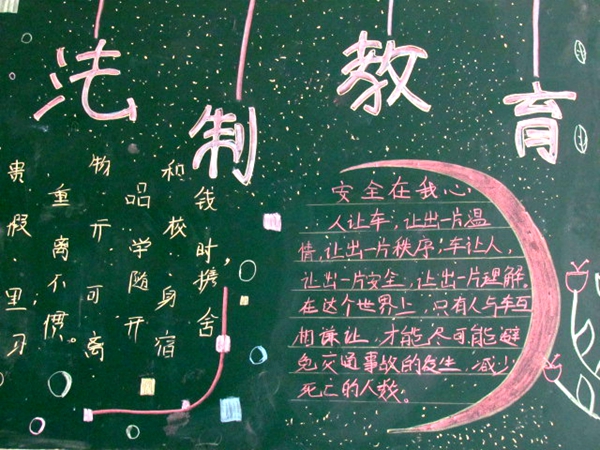 法制教育
贵重物品和钱
假离开学校时,
里;不可随身携
习惯。离开宿舍
安全在我心
人让车,让出一片温
情,让出一片秩序;车让人,
让出一片安全,让出一片理解。
在这个世界上,只有人与车互
相谦让,才能尽可能避
免交通事故的发生,减少
死亡的人数。